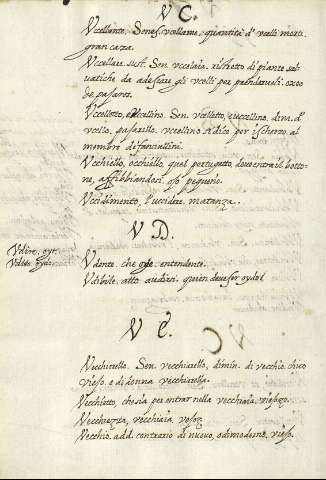 V C.
Vccellame. Senes. vccellame, quantità d'vcelli morti.
gran caza.
Vccellare. sust. Sen. vccelaia. ristretto di piante sal-
uatiche da adescare gli vcelli per prenderueli. oxeo
de paxaros.
Vccelletto, e vccellino. Sen. vcelletto, e vccellino, dim. d'
vcello, paxarillo. vccellino si dice per ischerzo, al
membro de' fanciullini.
Vcchiello, occhiello, quel pertugetto, doue entra il botto-
ne, affibbiandosi. ojo pequeño.
Vccidimento, l'uccidere. matanza.
V D.
Vdire, oyr.
Vdito, oydo.
Vdente, che ode. entendente.
Vdibile. atto audirsi. quien deue ser oydo.
V E.
Vecchierello. Sen. vecchiarello, dimin. di vecchio, chico
viejo. e di donna vecchiarella.
Vecchietto, che sia per entrar nella vecchiaia. viejazo.
Vecchiezza, vecchiaia. vejez.
Vecchio. add. contrario di nuouo, o di moderno, viejo.